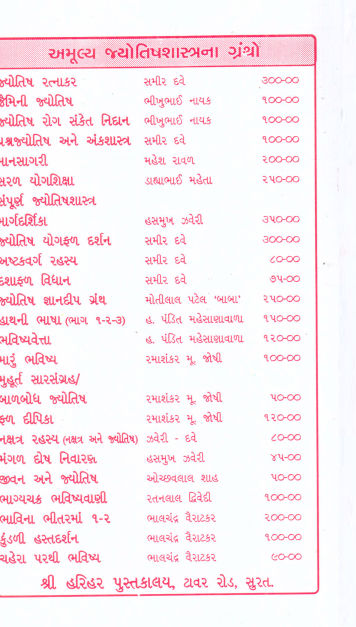 અમૂલ્ય જ્યોતિષશાસ્ત્રના ગ્રંથો
જ્યોતિષ રત્નાકર સમીર દવે ૩૦૦-૦૦
જૈમિની જ્યોતિષ ભીખુભાઈ નાયક ૧૦૦-૦૦
જ્યોતિષ રોગ સંકેત નિદાન ભીખુભાઈ નાયક ૧૦૦-૦૦
પ્રશ્નજ્યોતિષ અને અંકશાસ્ત્ર સમીર દવે ૧૦૦-૦૦
માનસાગરી મહેશ રાવળ ૨૦૦-૦૦
સરળ યોગશિક્ષા ડાહ્યાભાઈ મહેતા ૨૫૦-૦૦
સંપૂર્ણ જ્યોતિષશાસ્ત્ર
માર્ગદર્શિકા હસમુખ ઝવેરી ૩૫૦-૦૦
જ્યોતિષ યોગફળ દર્શન સમીર દવે ૩૦૦-૦૦
અષ્ટકવર્ગ રહસ્ય સમીર દવે ૮૦-૦૦
દશાફળ વિધાન સમીર દવે ૭૫-૦૦
જ્યોતિષ જ્ઞાનદીપ ગ્રંથ મોતીલાલ પટેલ ‘બાબા’ ૨૫૦-૦૦
હાથની ભાષા (ભાગ ૧-૨-૩) હ. પંડિત મહેસાણાવાળા ૧૫૦-૦૦
ભવિષ્યવેત્તા હ. પંડિત મહેસાણાવાળા ૧૨૦-૦૦
મારું ભવિષ્ય રમાશંકર મૂ. જોષી ૧૦૦-૦૦
મુહૂર્ત સારસંગ્રહ/
બાળબોધ જ્યોતિષ રમાશંકર મૂ. જોષી ૫૦-૦૦
ફળ દીપિકા રમાશંકર મૂ. જોષી ૧૨૦-૦૦
નક્ષત્ર રહસ્ય (નક્ષત્ર અને જ્યોતિષ) ઝવેરી - દવે ૮૦-૦૦
મંગળ દોષ નિવારણ હસમુખ ઝવેરી ૪૫-૦૦
જીવન અને જ્યોતિષ ઓચ્છવલાલ શાહ ૫૦-૦૦
ભાગ્યચક્ર ભવિષ્યવાણી રતનલાલ દ્વિવેદી ૧૦૦-૦૦
ભાવિના ભીતરમાં ૧-૨ ભાલચંદ્ર વૈરાટકર ૨૦૦-૦૦
કુંડળી હસ્તદર્શન ભાલચંદ્ર વૈરાટકર ૧૦૦-૦૦
ચહેરા પરથી ભવિષ્ય ભાલચંદ્ર વૈરાટકર ૯૦-૦૦
શ્રી હરિહર પુસ્તકાલય, ટાવર રોડ, સુરત.